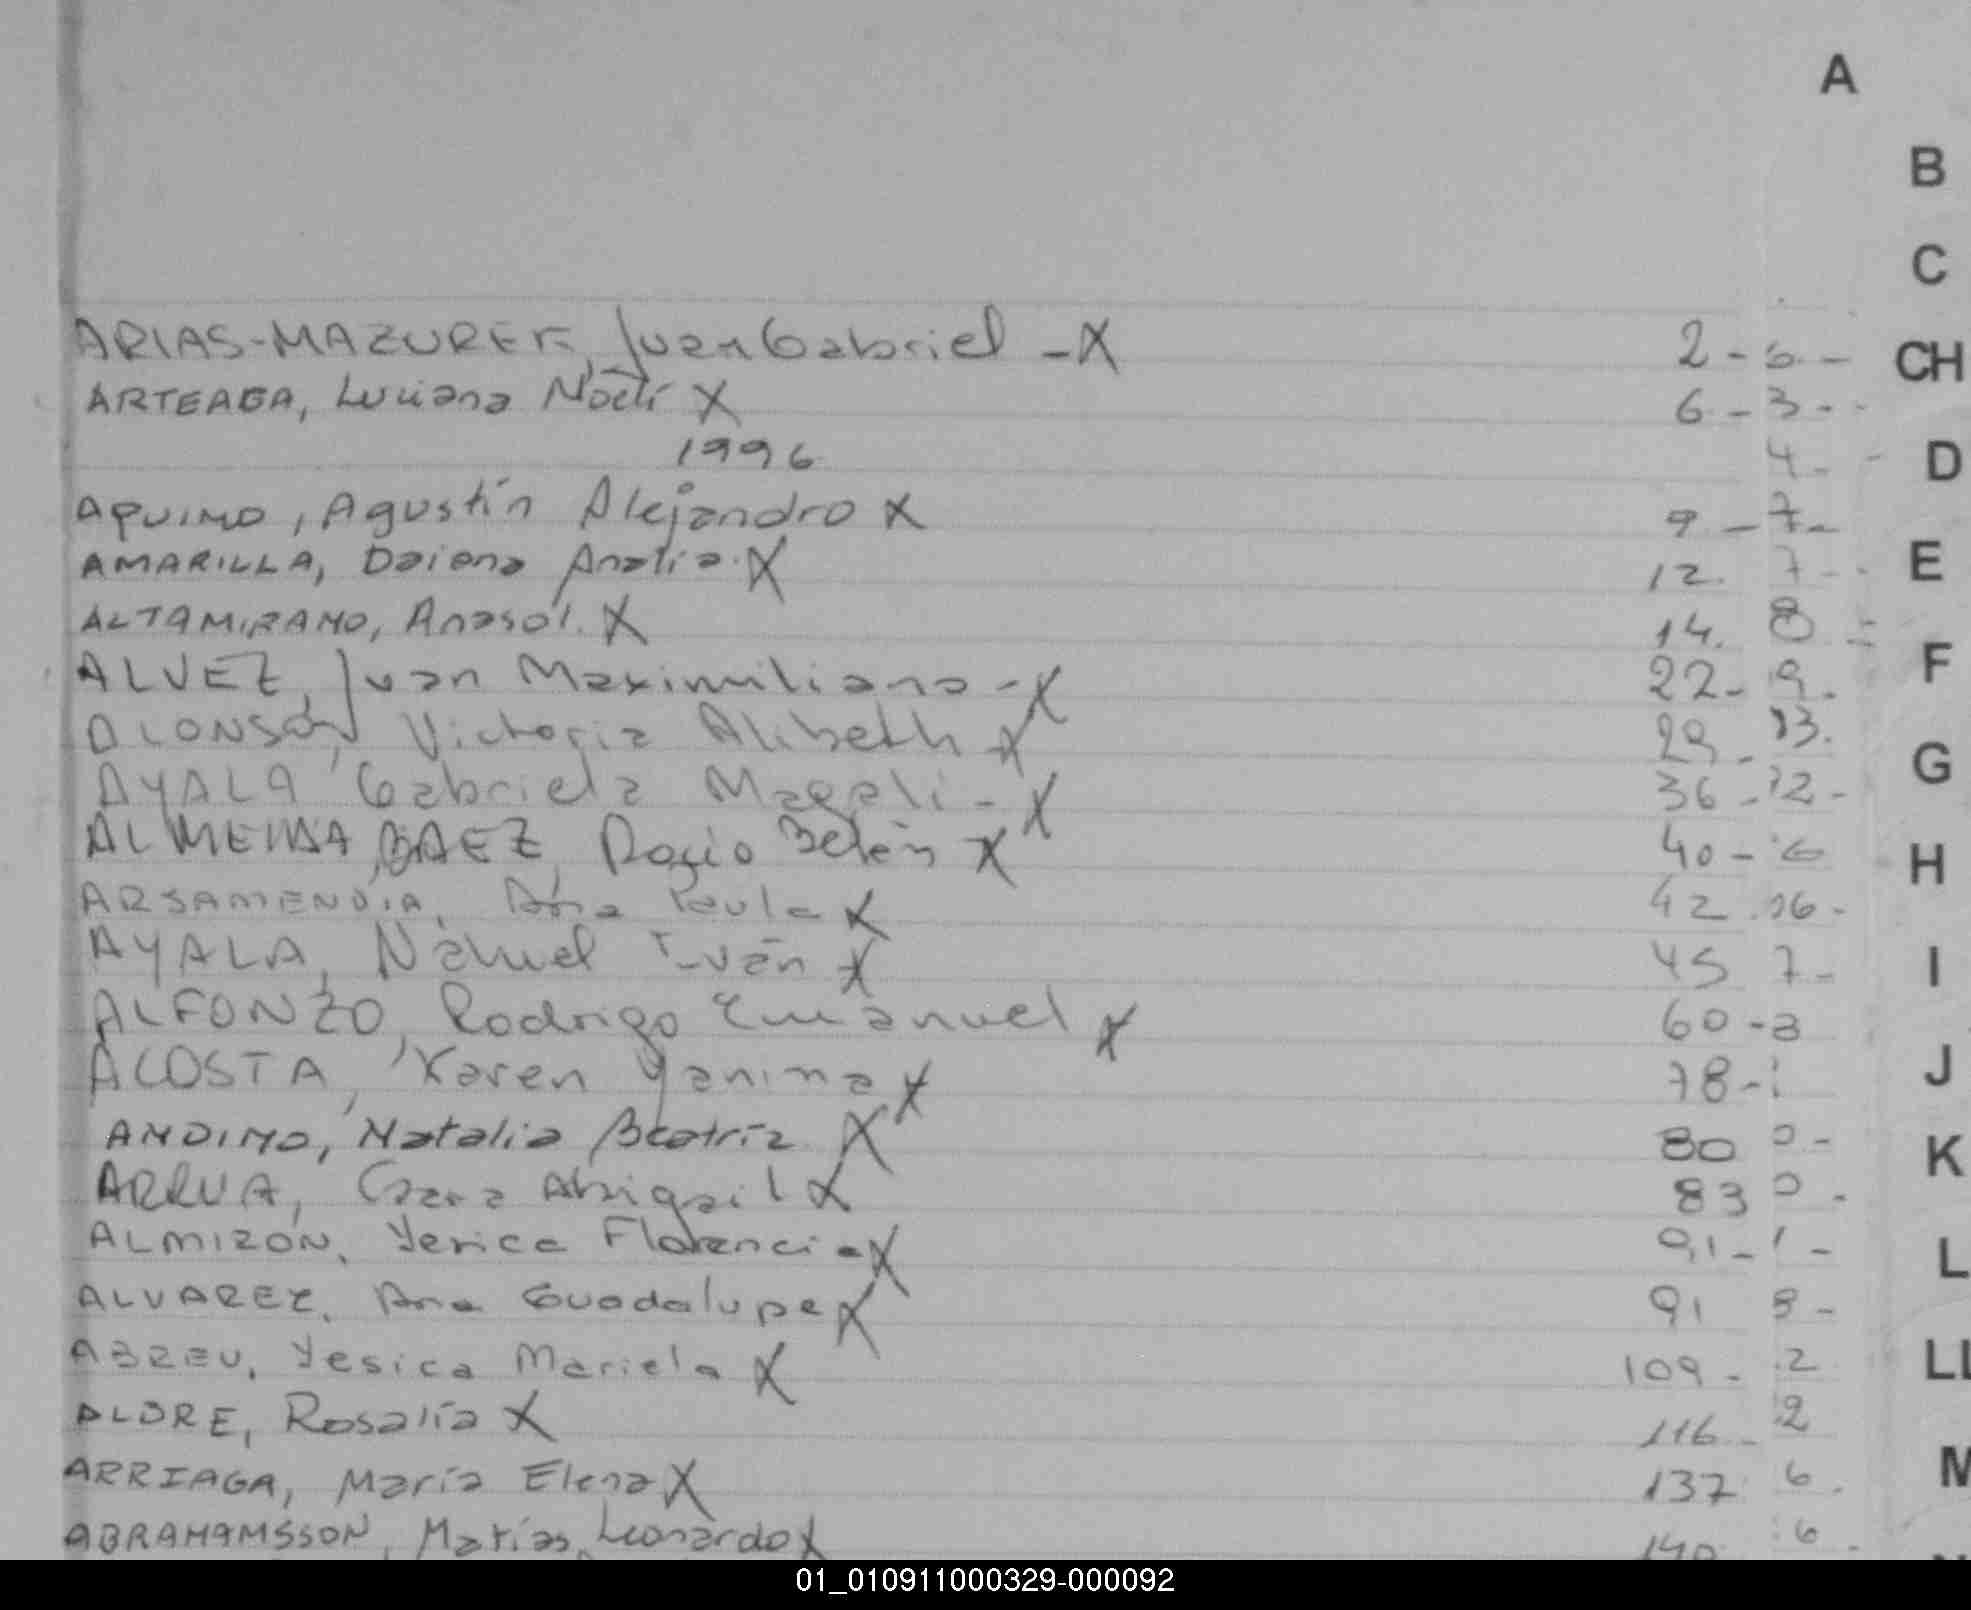 A
B
C
ARIAS-MAZUREK, Juan Gabriel - X 2 - 6 -
CH
ARTEAGA, Luciana Noelí X 6 - 3 -
1996 4 -
D
AQUINO, Agustín Alejandro X 9 - 7 -
AMARILLA, Daiana Analía. X 12. 7 -
E
ALTAMIRANO, Anasol. X 14. 8
ALVEZ, Juan Maximiliano - X 22 - 9.
F
ALONSO, Victoria Alibeth X 29 - 13.
G
AYALA, Gabriela Magali - X 36 - 12 -
ALMEIDA BAEZ, Rocio Belén X 40 - 6
H
ARSAMENDIA, Ana Paula X 42 06 -
AYALA, Nahuel Iván X 45 7 -
I
ALFONZO, Rodrigo Emanuel X 60 - 3
ACOSTA, Karen Yanina X 78 -
J
ANDINO, Natalia Beatriz X 80 0 -
K
ARRUA, Abigail X 83 0 -
ALMIZÓN, Yesica Florencia - X 91 - 1 -
L
ALVAREZ, Ana Guadalupe X 91 8 -
ABREU, Yesica Mariela X 109 - 2
LL
ALDRE, Rosalía X 116 - 2
ARRIAGA, María Elena X 137 6.
M
ABRAHAMSSON, Matías Leonardo X 140 6
01_010911000329-000092